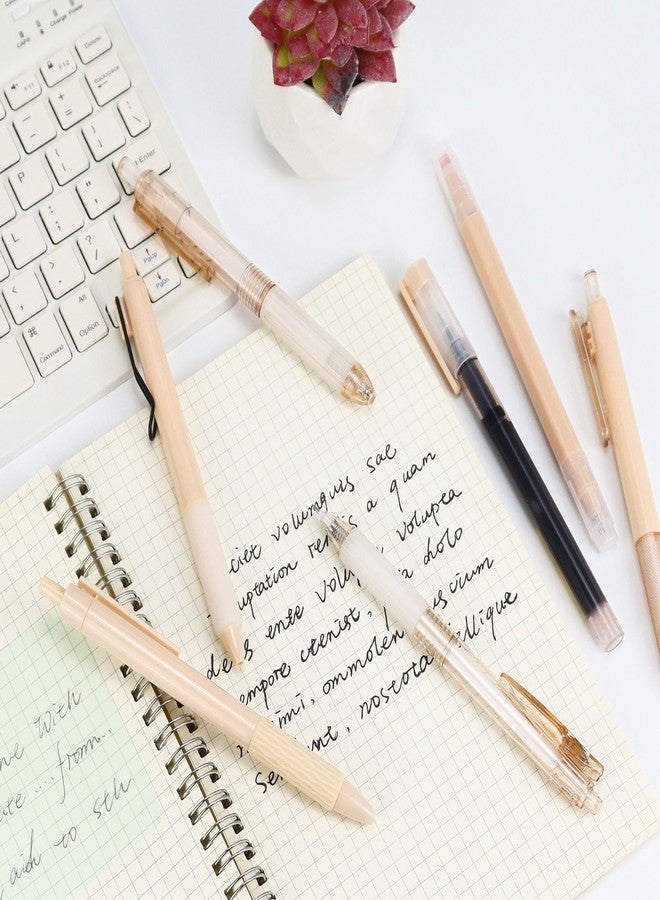 CAPS
Charge
Power
F11
F12
Delete
Backspace
Enter
PgUp
PgDn
Alt
Option
⌘
Command
P
L
+
=
-
{
[
}
]
|
\
:
;
"
'
<
,
>
.
?
/
ciet volumquis sae
uptation rem is a quam
de s ente volup volupea
empore ctenist, a dolo
imi, ommolen us cium
Se nt, nostota ellique
me With
ate .... from..
aid to sth